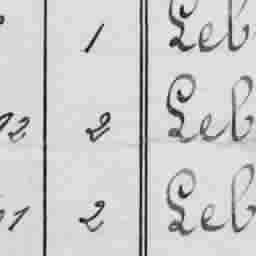 1 Leb
2 2 Leb
1 2 Leb